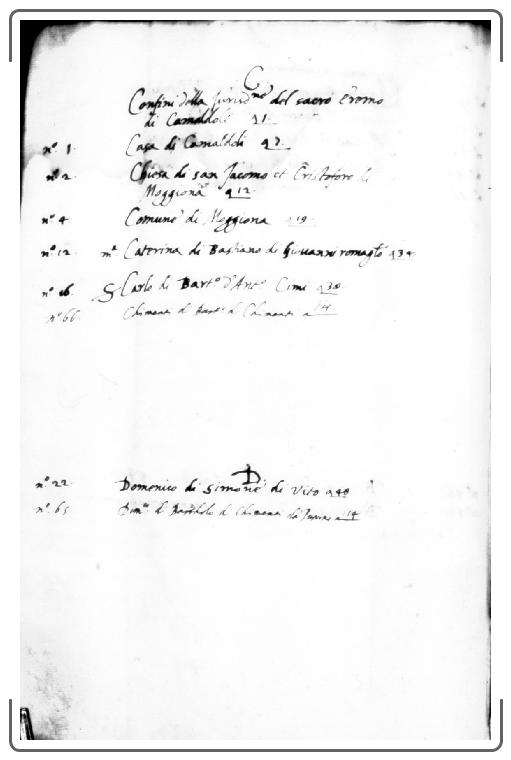 C
Confini della Jurisdne del sacro Eremo
di Camaldoli 11
nº 1. Casa di Camaldoli a 7.
nº 2. Chiesa di San Jacomo et Cristoforo di
Moggiona a 12
nº 4 Comune di Moggiona a 19
nº 12 mª Caterina di Bastiano di Giovanni romagto a 34
nº 16 Carlo di Barto d'Anto Cimi a 38
nº 66 Chimenti di Barto di Chimenti a
D
nº 22. Domenico di Simone di Vito a 48
nº 65 di Bartholo di Chimenti da